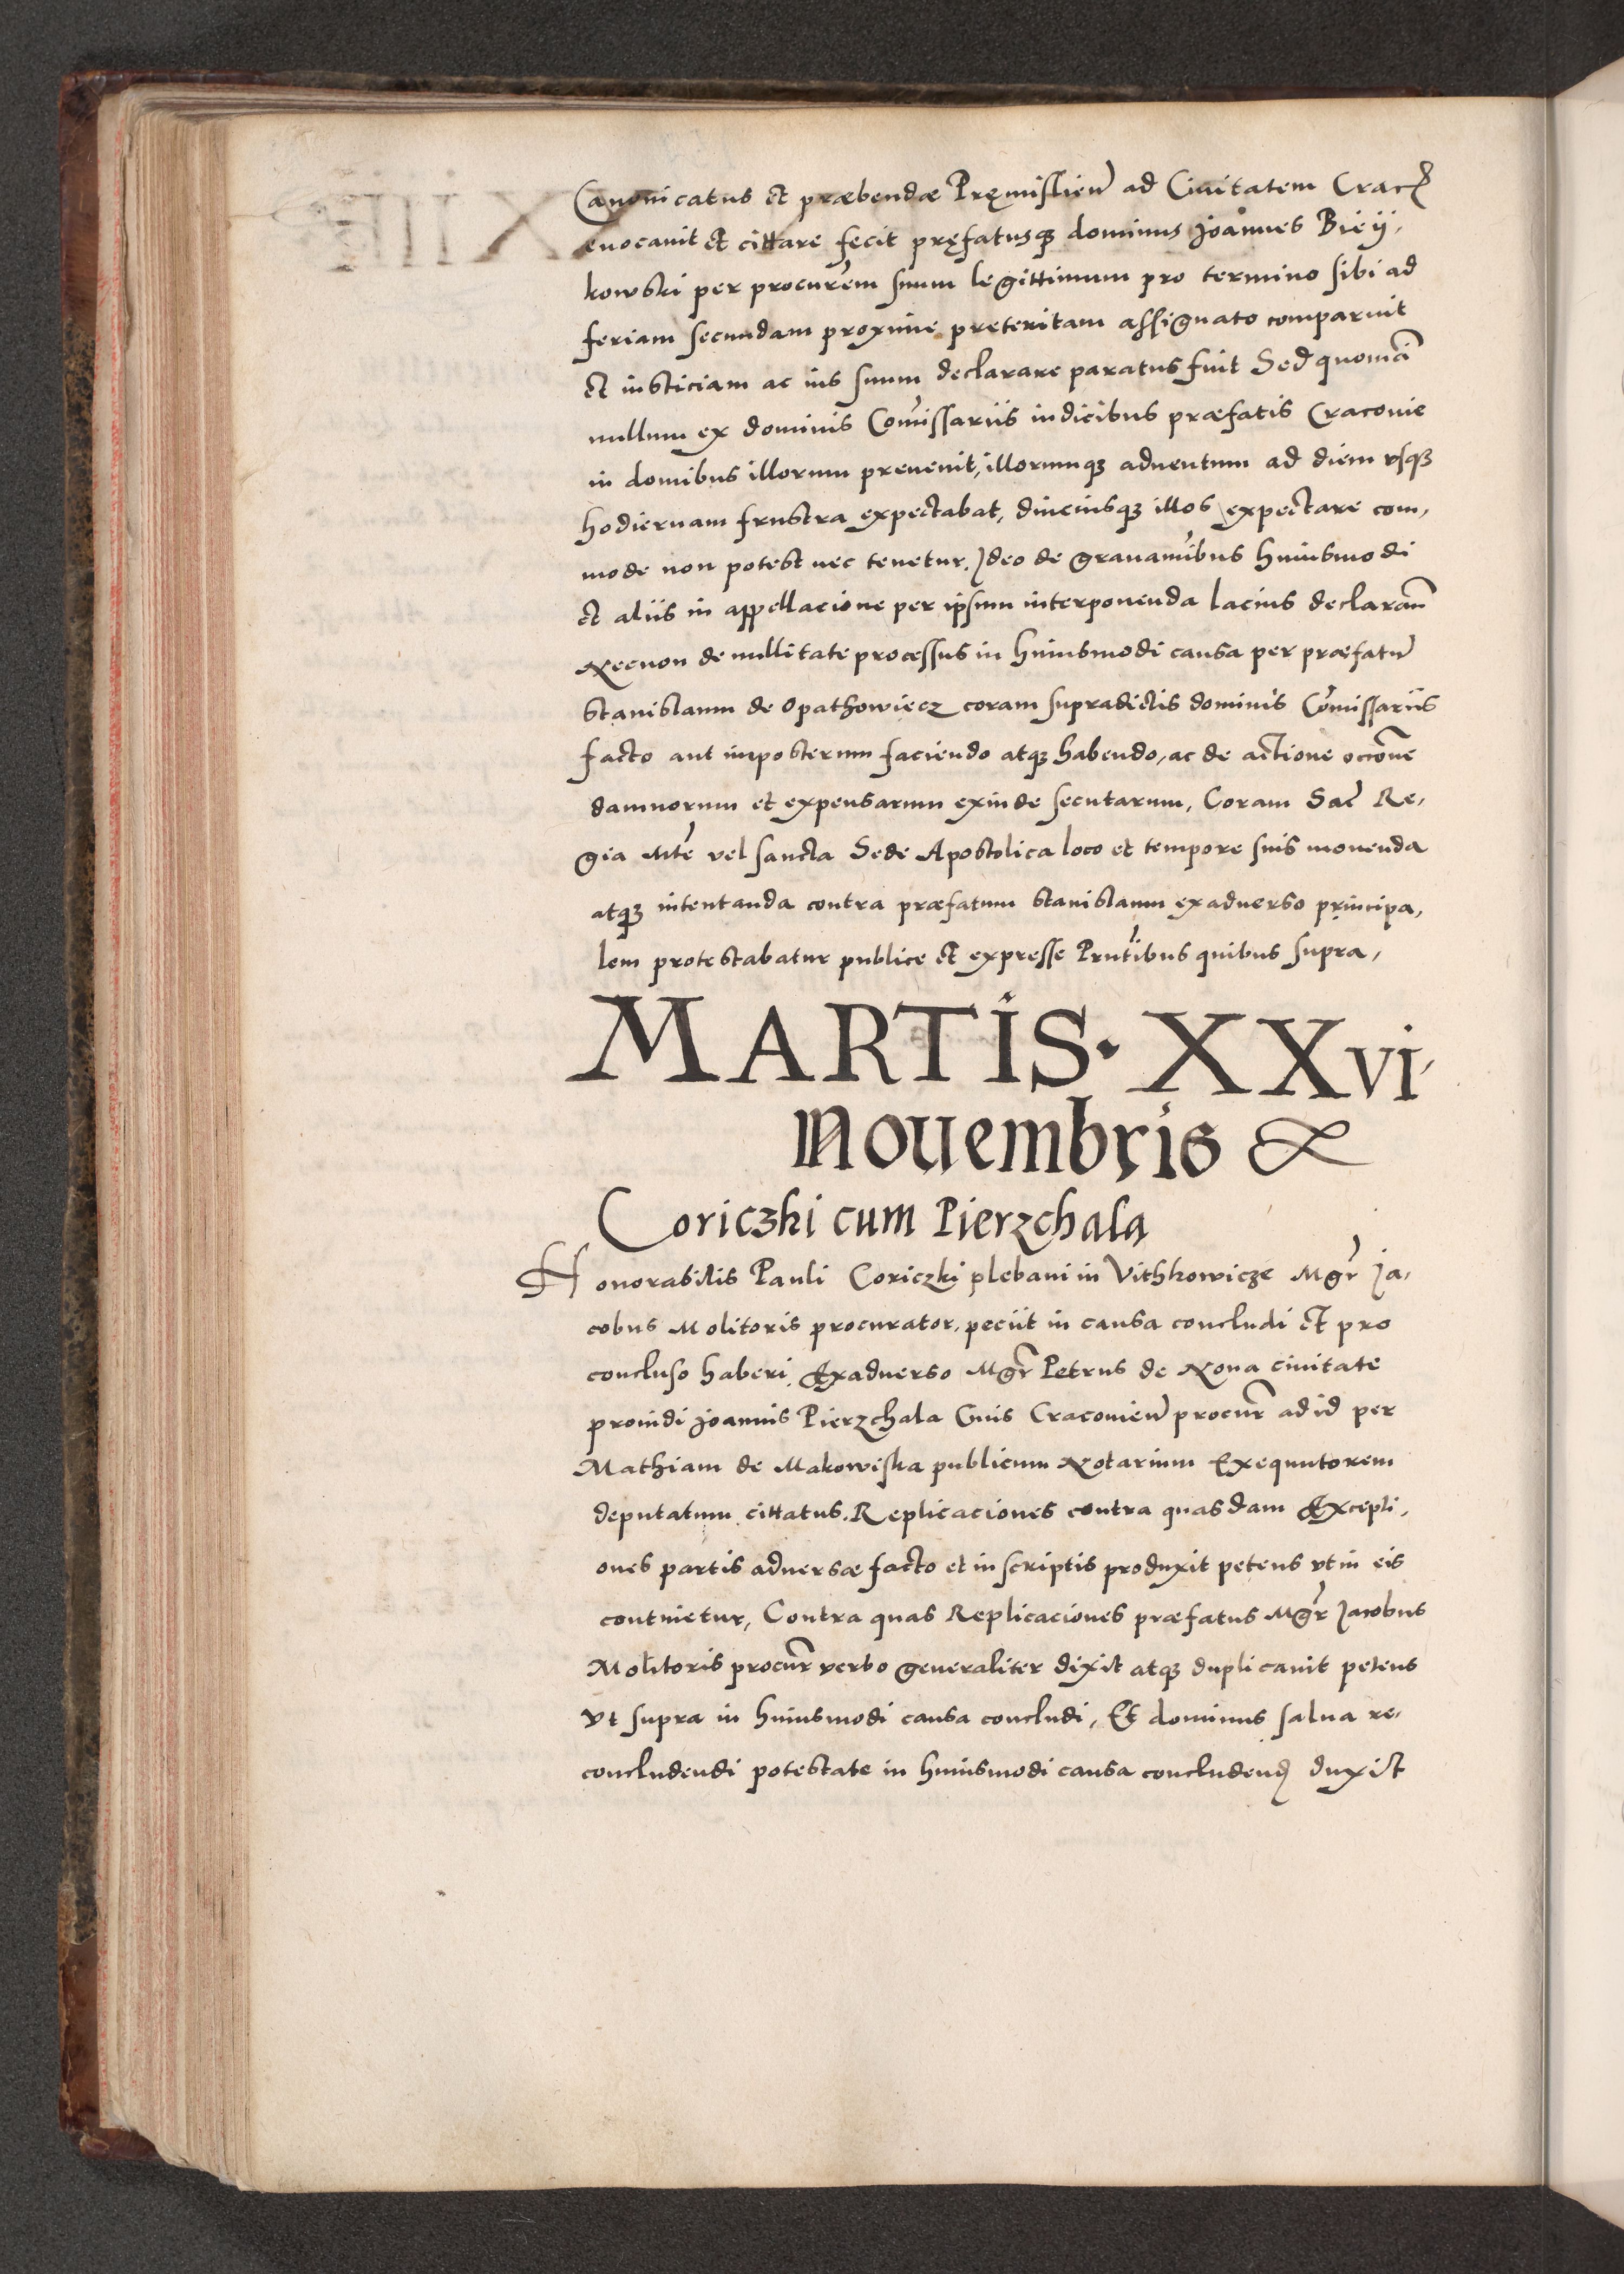 Canonicatus et præbendæ Pręmislien̄ ad Ciuitatem Crac̄
euocauit et cittare fecit pręfatusqꝫ dominus Joannes Bieÿ,
kowski per procurem̄ suum legittimum pro termino sibi ad
feriam secundam proxime preteritam assignato comparuit
et iusticiam ac ius suum declarare paratus fuit Sed quonia᷈
nullum ex dominis Com̄issariis iudicibus præfatis Cracouie
in domibus illorum preuenit, illorumqꝫ aduentum ad diem vsqꝫ
hodiernam frustra expectabat, diuciusqꝫ illos expectare com,
mode non potest nec tenetur. Ideo de grauam̄ibus huiusmodi
et aliis in appellacione per ipsum interponenda lacius declaran̄
Necnon de nullitate processus in huiusmodi causa per præfatū
Stanislaum de Opathowiecz coram supradictis dominis Com̄issariis
facto aut imposterum faciendo atqꝫ habendo, ac de actione occōne
damnorum et expensarum exinde secutarum, Coram Sac̄ Re,
gia Mte̅ vel sancta Sede Apostolica loco et tempore suis mouenda
atqꝫ intentanda contra præfatum Stanislaum exaduerso principa,
lem protestabatur publice et expresse Prn̄tibus quibus supra,
MARTIS · XXvi
Nouembris
Coriczki cum Pierzchala
Honorabilis Pauli Coriczki plebani in Vithkowicze Mgr̄ Ja,
cobus Molitoris procurator, peciit in causa concludi et pro
concluso haberi, Exaduerso Mgr̄ Petrus de Noua ciuitate
prouidi Joannis Pierzchala Ciuis Cracouien̄ procur̄ ad id per
Mathiam de Makowiska publicum Notarium Exequutorem
deputatum cittatus. Replicaciones contra quasdam Excepti,
ones partis aduersæ facto et in scriptis produxit petens vt in eis
continetur, Contra quas Replicaciones præfatus Mgr̄ Jacobus
Molitoris procur̄ verbo generaliter dixit atqꝫ duplicauit petens
vt supra in huiusmodi causa concludi, Et dominus salua re,
concludendi potestate in huiusmodi causa concludend̄ duxit